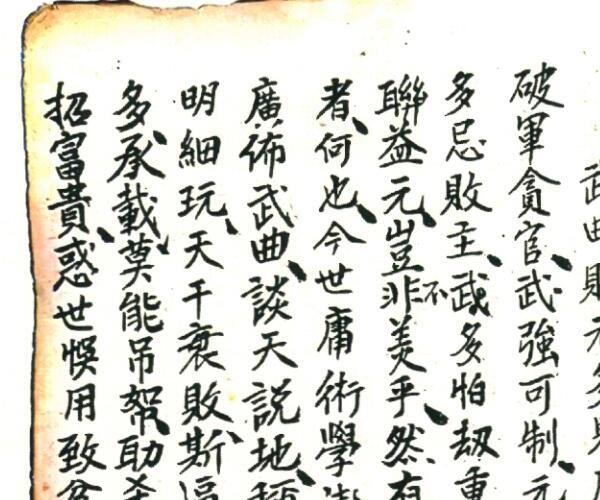 武曲財
破軍貪官、武強可制、元
多忌敗主、武不多怕劫重
聯益元、豈非美乎、然有
者、何也、今世庸術學
廣佈武曲、談天說地、
明細玩、天干衰敗、斯
多、承載莫能吊幫、助
招富貴、惑世悞用致